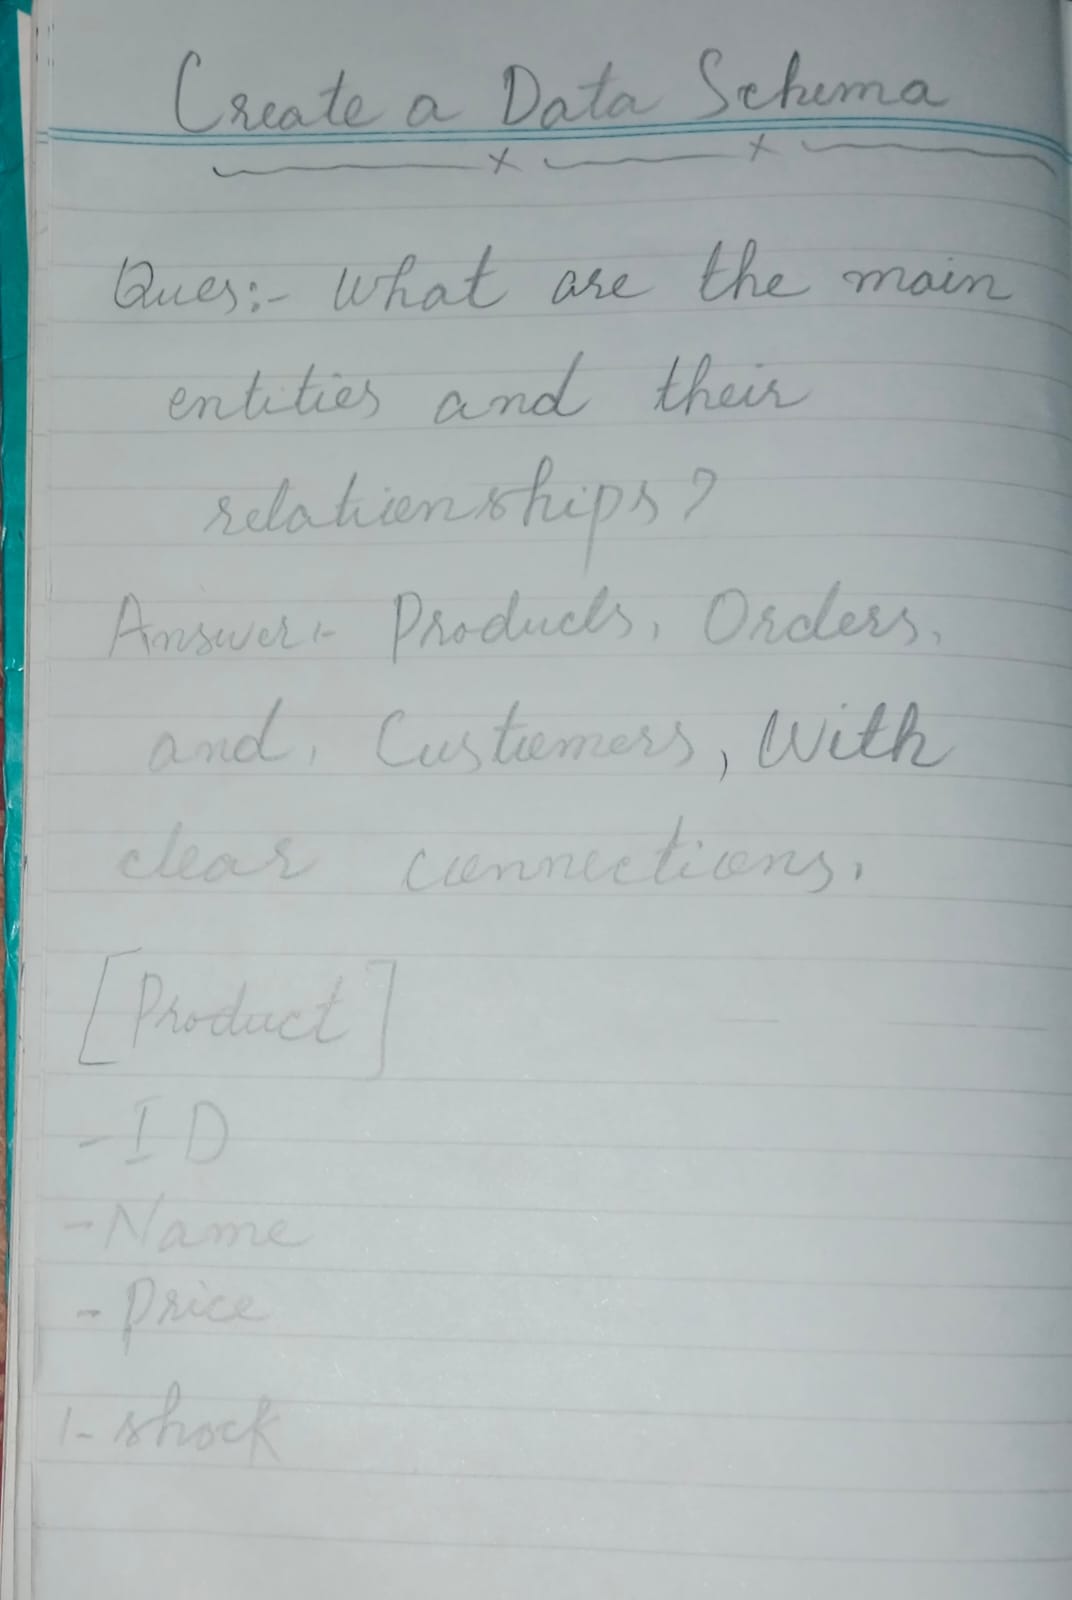 Create a Data Schema
Ques:- What are the main
entities and their
relationships?
Answer:- Products, Orders,
and, Customers, With
clear connections.
[Product]
- ID
- Name
- Price
- shock